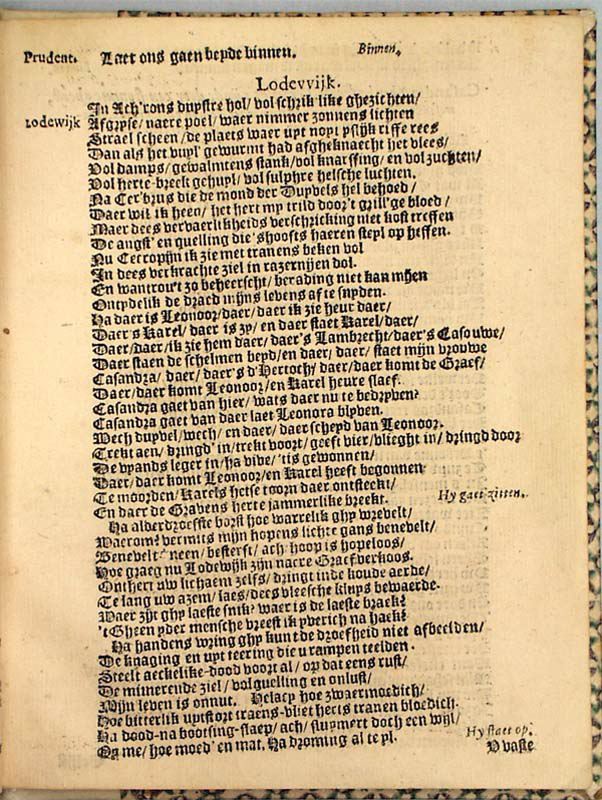 Prudent. Laet ons gaen beyde binnen. Binnen.
Lodevvijk.
In Ach'rons duystre hol/ vol schrik-like ghezichten/
Lodewijk Afgryse/ naere poel/ waer nimmer zonnens lichten
Strael scheen/ de plaets waer uyt noyt yslijk risse rees
Dan als het vuyl' gewurmt had afgheknaecht het vlees/
Vol damps/ gewalmtens stank/ vol knarssing/ en vol zuchten/
Vol herte-breeck gehuyl/ vol sulphre helsche luchten.
Na Cer'brus die de mond der Duyvels hel behoed/
Daer wil ik heen/ het hert my trild door't grill'ge bloed/
Maer dees vervaerlikheids verschricking niet kost treffen
De angst' en quelling die 'shoofts haeren steyl op heffen.
Nu Cecropijn ik zie met tranens beken vol
In dees verkrachte ziel in razernijen dol.
En wantrout zo beheerscht/ berading niet kan mijen
Ontydelik de draed mijns levens af te snyden.
Ha daer is Leonoor/ daer/ daer ik zie heur daer/
Daer's Karel/ daer is zy/ en daer staet Karel/ daer/
Daer/ daer/ ik zie hem daer/ daer's Lambrecht/ daer's Casouwe/
Daer staen de schelmen beyd/ en daer/ daer/ staet mijn vrouwe
Casandra/ daer/ daer's d'Hertoch/ daer/ daer komt de Graef/
Daer/ daer komt Leonoor/ en Karel heure slaef.
Casandra gaet van hier/ wats daer nu te bedryven?
Casandra gaet van daer laet Leonora blyven.
Wech duyvel/ wech/ en daer/ daer scheyd van Leonoor.
Trekt aen/ dringd' in/ trekt voort/ geeft vier/ vlieght in/ dringd door
De vyands leger in/ ha vive/ 'tis gewonnen/
Daer/ daer komt Leonoor/ en Karel heeft begonnen
Te moorden/ Karels hetse toorn daer ontsteckt/
En daer de Gravens herte jammerlike breekt. Hy gaet zitten.
Ha alderdroefste borst hoe warrelik ghy wrevelt/
Waerom? vermits mijn hopens lichte gans benevelt/
Benevelt? neen/ besterft/ ach hoop is hopeloos/
Hoe graeg nu Lodewijk zijn nacre Graef verkoos.
Ontkert uw lichaem zelfs/ dringt inde koude aerde/
Te lang uw azem/ laes/ dees vleesche kluys bewaerde.
Waer zijt ghy laeste snik? waer is de laeste braek?
't Gheen yder mensche vreest ik yverich na haek?
Ha handens wring ghy kunt de droefheid niet afbeelden/
De knaging en uyt teering die u rampen teelden.
Steelt aeckelike-dood voort al/ op dat eens rust/
De mimerende ziel/ vol quelling en onlust/
Mijn leven is onnut. Helacy hoe zwaermoedich/
Hoe bitterlik uytstort traens-vliet herts tranen bloedich.
Ha dood-na bootsing-slaep/ ach/ sluymert doch een wyl/
Og me/ hoe moed' en mat. Ha droming al te yl. Hy staet op.
V vaste